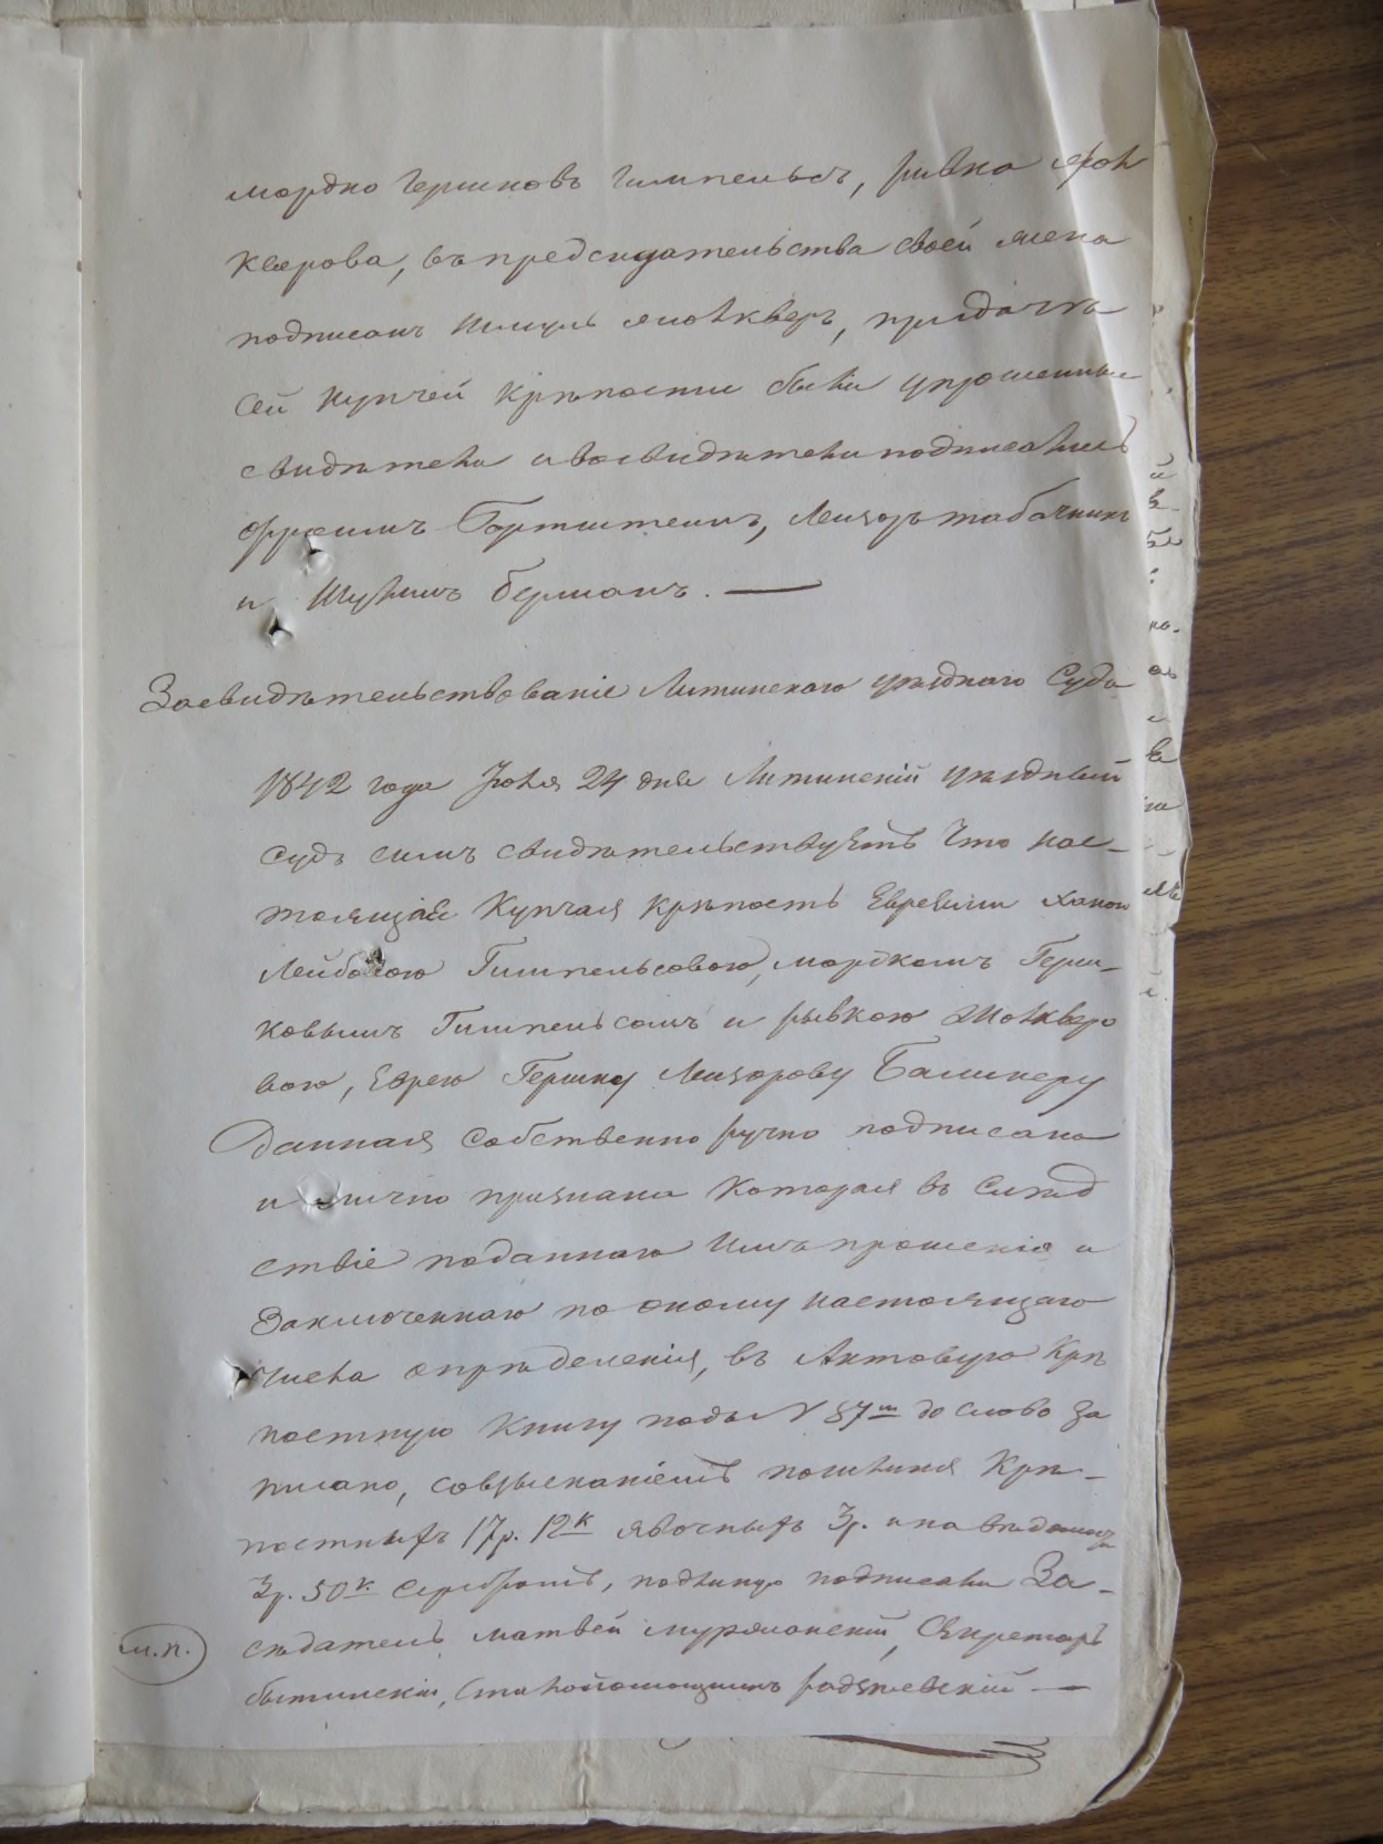 мордко Гершковъ Гимпельсъ, рывка
клерова, въ председательства своей
подписалъ Шмуль Молкверъ, придачта
сей купчей крѣпости были упрошенные
свидѣтели и восвидѣтели подписались
Фроимъ Гортштеинъ, Лейзоръ табачникъ
и Шулимъ берманъ. —
Засвидѣтельствованіе Литинскаго уѣзднаго Суда
1842 года Іюля 24 дня Литинскій уѣздный
судъ симъ свидѣтельствуетъ Что нас-
тоящая Купчая крѣпость Евреями ханою
Лейбовою Гимпельсовою, мордкомъ Герш-
ковымъ Гимпельсомъ и рывкою Молкверо
вою, Еврею Гершку Лейзорову Балинеру
данная собственно ручно подписана
и лично признана Которая въ Слѣд
ствіе поданнаго Имъ прошенія и
Заключеннаго по оному настоящаго
числа опрѣделенія, въ Актовую Крѣ
постную Книгу подъ N 57ш до слово за
писано, совзысканіемъ пошлинъ Крѣ-
постныхъ 17р. 12к явочныхъ 3р. и на
3р. 50к. серебромъ, подлиную подписали За-
сѣдатель матвей Секретарь
м.п.
Столопомощникъ радзѣевскій —